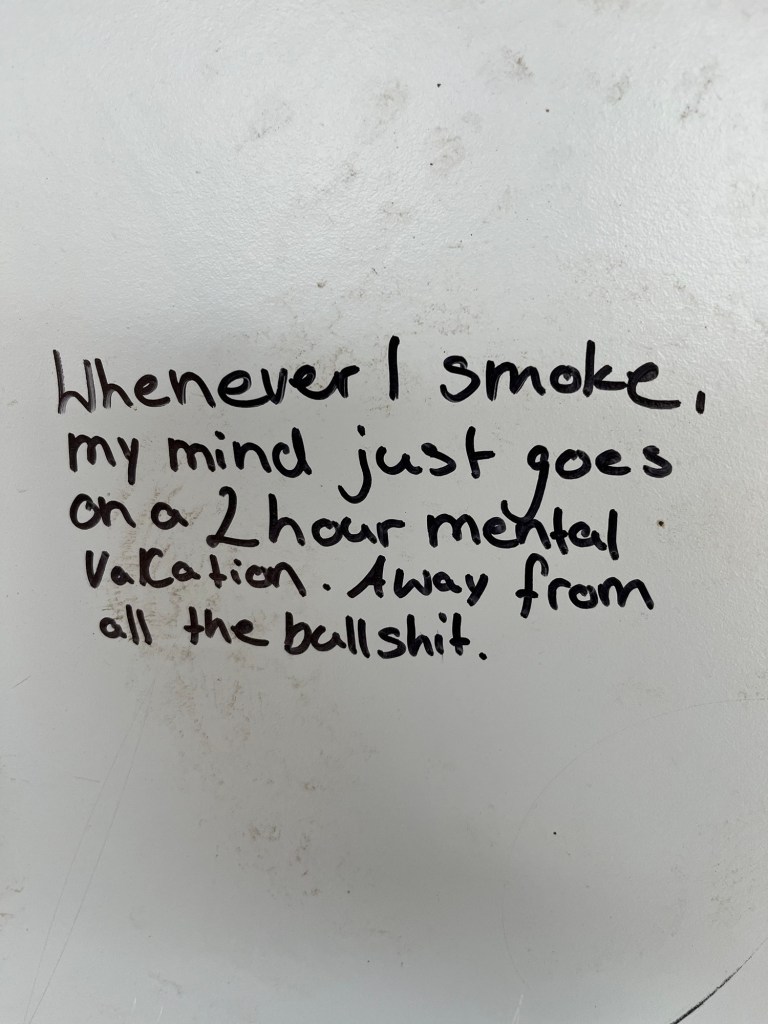 Whenever I smoke,
my mind just goes
on a 2 hour mental
Vakation. Away from
all the bullshit.